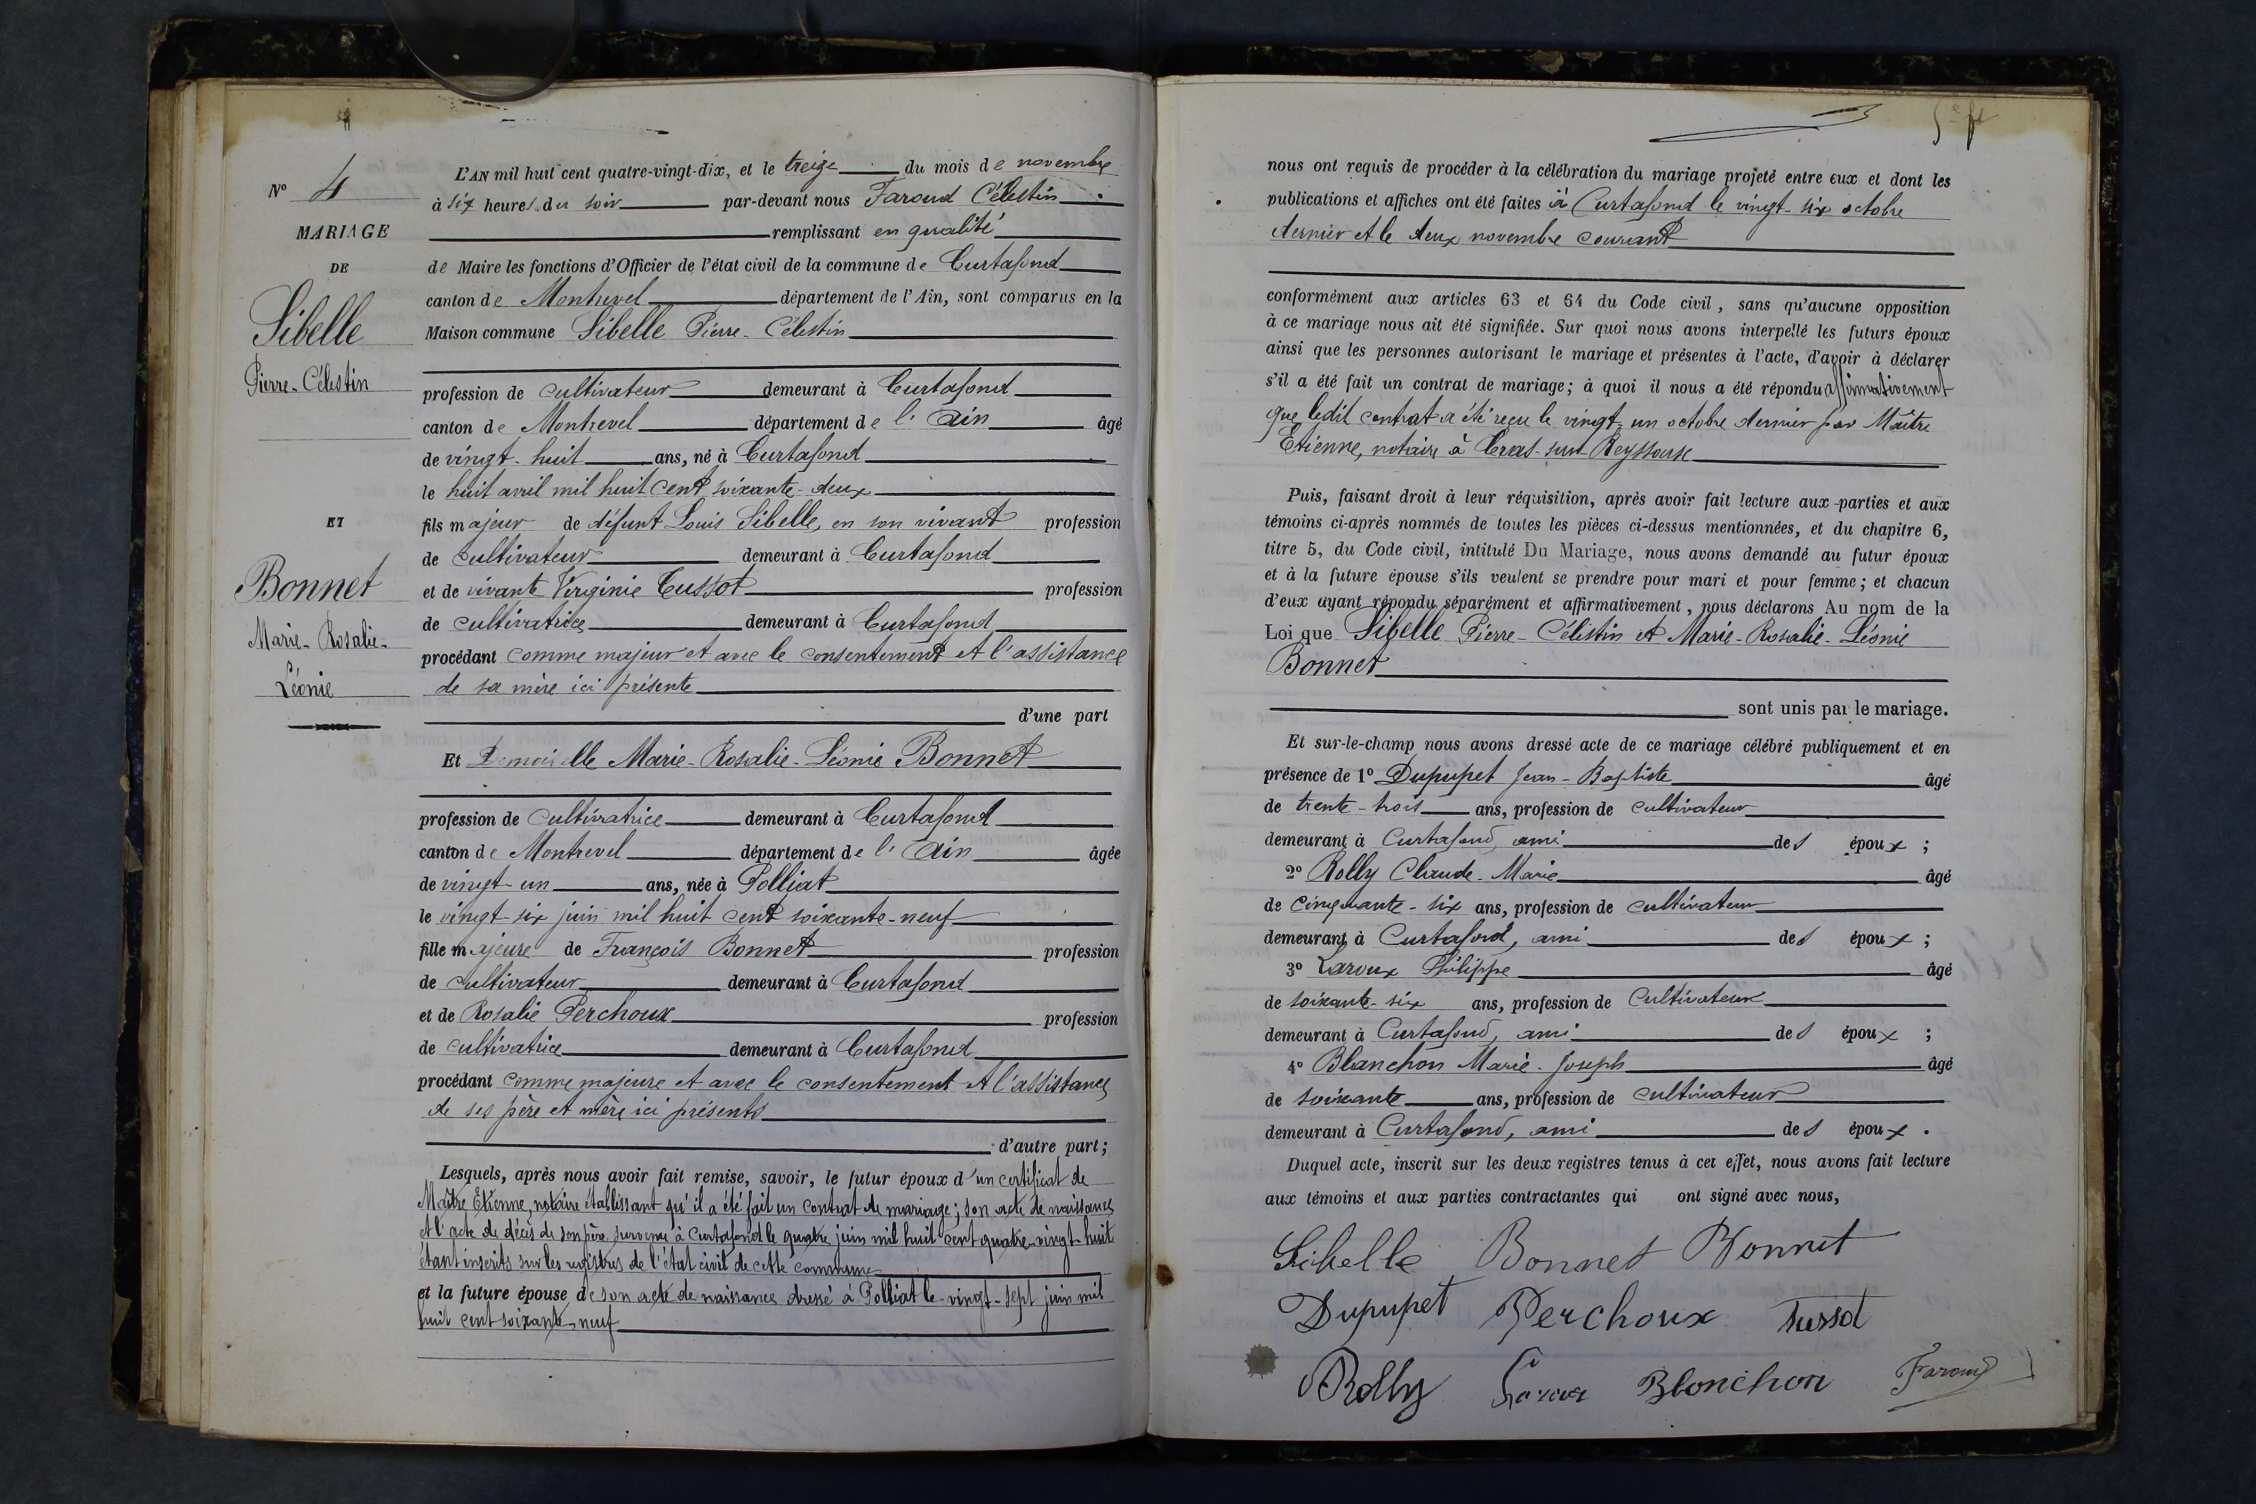 N° 4
MARIAGE
DE
Sibelle
Pierre-Célestin
ET
Bonnet
Marie-Rosalie-
Léonie
L'AN mil huit cent quatre-vingt-dix, et le treize du mois de novembre
à six heures du soir par-devant nous Faroud Célestin
remplissant en qualité
de Maire les fonctions d'Officier de l'état civil de la commune de Curtafond
canton de Montrevel département de l'Ain, sont comparus en la
Maison commune Sibelle Pierre-Célestin
profession de cultivateur demeurant à Curtafond
canton de Montrevel département de l'Ain âgé
de vingt-huit ans, né à Curtafond
le huit avril mil huit cent soixante-deux
fils majeur de défunt Louis Sibelle, en son vivant profession
de cultivateur demeurant à Curtafond
et de vivante Virginie Tussot profession
de cultivatrice demeurant à Curtafond
procédant comme majeur et avec le consentement et l'assistance
de sa mère ici présente
d'une part
Et Demoiselle Marie-Rosalie-Léonie Bonnet
profession de cultivatrice demeurant à Curtafond
canton de Montrevel département de l'Ain âgée
de vingt-un ans, née à Polliat
le vingt-six juin mil huit cent soixante-neuf
fille majeure de François Bonnet profession
de cultivateur demeurant à Curtafond
et de Rosalie Perchoux profession
de cultivatrice demeurant à Curtafond
procédant comme majeure et avec le consentement et l'assistance
de ses père et mère ici présents
d'autre part;
Lesquels, après nous avoir fait remise, savoir, le futur époux d'un certificat de
Maître Etienne, notaire établissant qu'il a été fait un contrat de mariage; son acte de naissance
et l'acte de décès de son père survenu à Curtafond le quatre juin mil huit cent quatre-vingt-huit
étant inscrits sur les registres de l'état civil de cette commune
et la future épouse de son acte de naissance dressé à Polliat le vingt-sept juin mil
huit cent soixante-neuf
nous ont requis de procéder à la célébration du mariage projeté entre eux et dont les
publications et affiches ont été faites à Curtafond le vingt-six octobre
dernier et le deux novembre courant
conformément aux articles 63 et 64 du Code civil, sans qu'aucune opposition
à ce mariage nous ait été signifiée. Sur quoi nous avons interpellé les futurs époux
ainsi que les personnes autorisant le mariage et présentes à l'acte, d'avoir à déclarer
s'il a été fait un contrat de mariage; à quoi il nous a été répondu affirmativement
que ledit contrat a été reçu le vingt-un octobre dernier par Maître
Etienne, notaire à Cras-sur-Reyssouse
Puis, faisant droit à leur réquisition, après avoir fait lecture aux parties et aux
témoins ci-après nommés de toutes les pièces ci-dessus mentionnées, et du chapitre 6,
titre 5, du Code civil, intitulé Du Mariage, nous avons demandé au futur époux
et à la future épouse s'ils veulent se prendre pour mari et pour femme; et chacun
d'eux ayant répondu séparément et affirmativement, nous déclarons Au nom de la
Loi que Sibelle Pierre-Célestin et Marie-Rosalie-Léonie
Bonnet
sont unis par le mariage.
Et sur-le-champ nous avons dressé acte de ce mariage célébré publiquement et en
présence de 1° Dupupet Jean-Baptiste âgé
de trente-trois ans, profession de cultivateur
demeurant à Curtafond, ami des époux;
2° Rolly Claude-Marie âgé
de cinquante-six ans, profession de cultivateur
demeurant à Curtafond, ami des époux;
3° Laroux Philippe âgé
de soixante-six ans, profession de cultivateur
demeurant à Curtafond, ami des époux;
4° Blanchon Marie-Joseph âgé
de soixante ans, profession de cultivateur
demeurant à Curtafond, ami des époux.
Duquel acte, inscrit sur les deux registres tenus à cet effet, nous avons fait lecture
aux témoins et aux parties contractantes qui ont signé avec nous,
Sibelle Bonnet Bonnet
Dupupet Perchoux Tussot
Rolly Laroux Blonchon Faroud